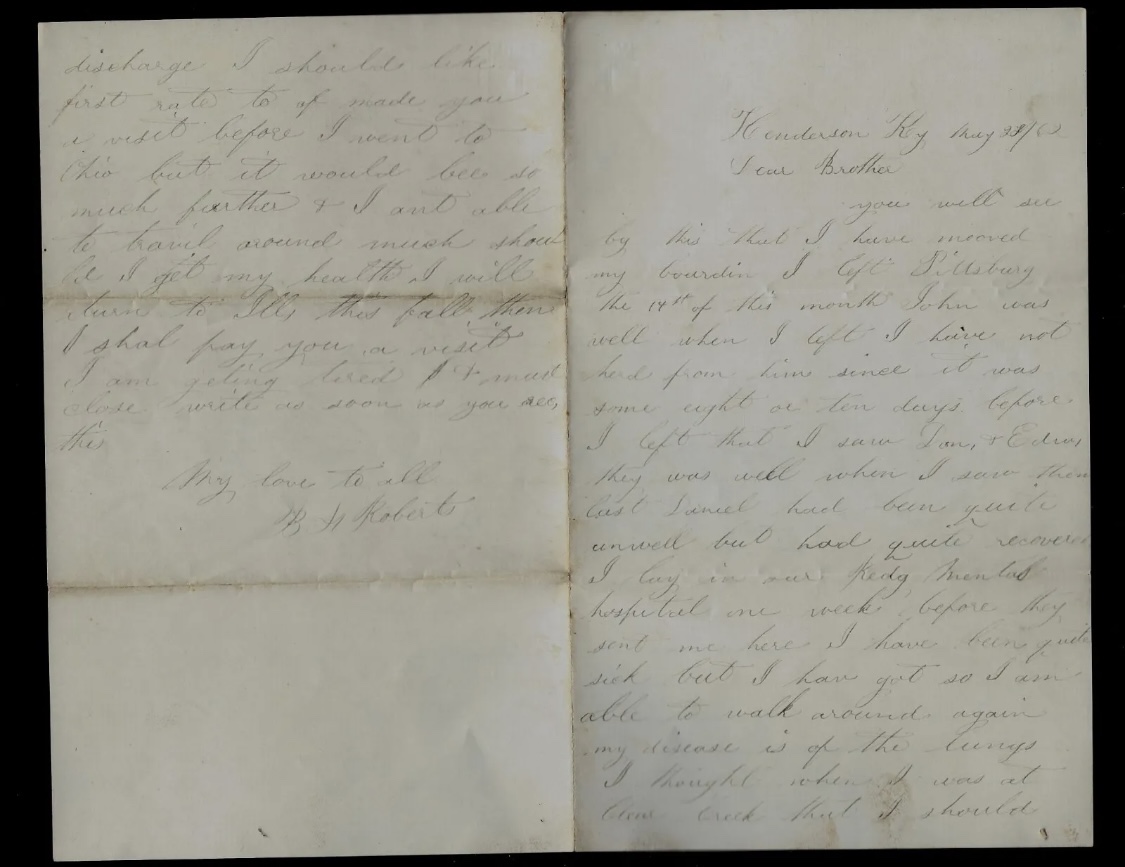 discharge I should like
first rate to of made you
a visit before I went to
Ohio but it would bee so
much further & I ant able
to travil around much shoul
d I get my health I will
turn to Ills this fall then
I shal pay you a visit
I am geting tired & must
close write as soon as you
this
My love to all
Roberts
Henderson Ky May /62
Dear Brother
you will see
by this that I have mooved
my bourdin I left Pittsburg
the 14st of this month John was
well when I left I have not
herd from him since it was
some eight or ten days before
I left that I saw Dan, & Edwin
they was well when I saw them
last Daniel had been quite
unwell but had quite recovered
I lay in our Redg mental
hospital one week before they
sent me here I have been quite
sick but I hav got so I am
able to walk around again
my disease is of the lungs
I thought when I was at
Creek that I should